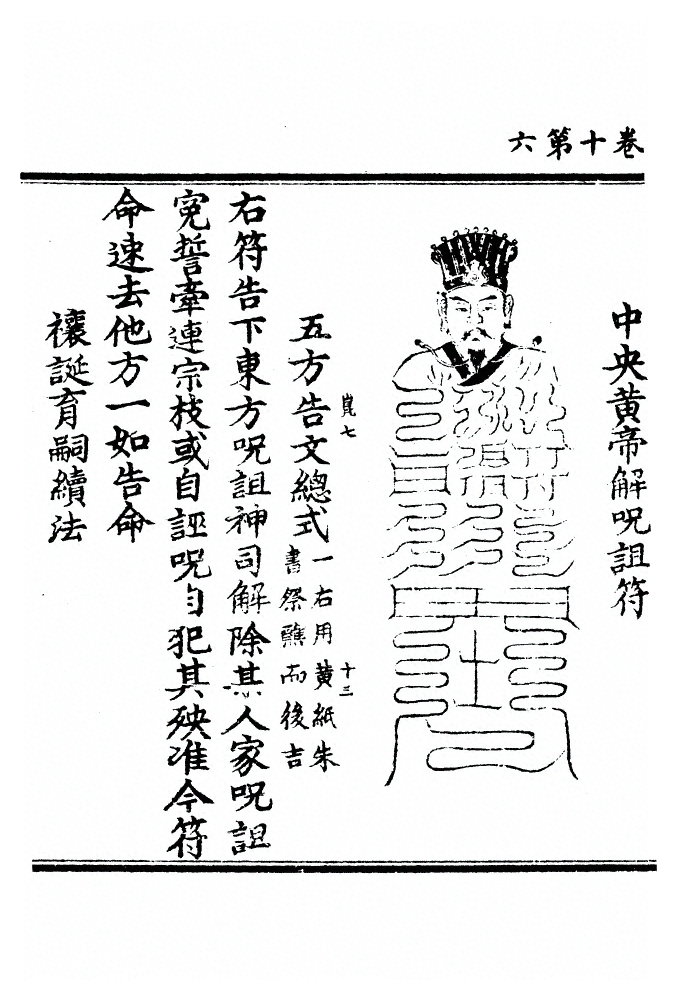 卷十第六
中央黄帝解呪詛符
五方告文總式
一右用黄紙朱
書祭醮而後吉
七
十三
右符告下東方呪詛神司解除某人家呪詛
寃誓牽連宗枝或自誣呪自犯其殃准今符
命速去他方一如告命
禳誕育嗣續法